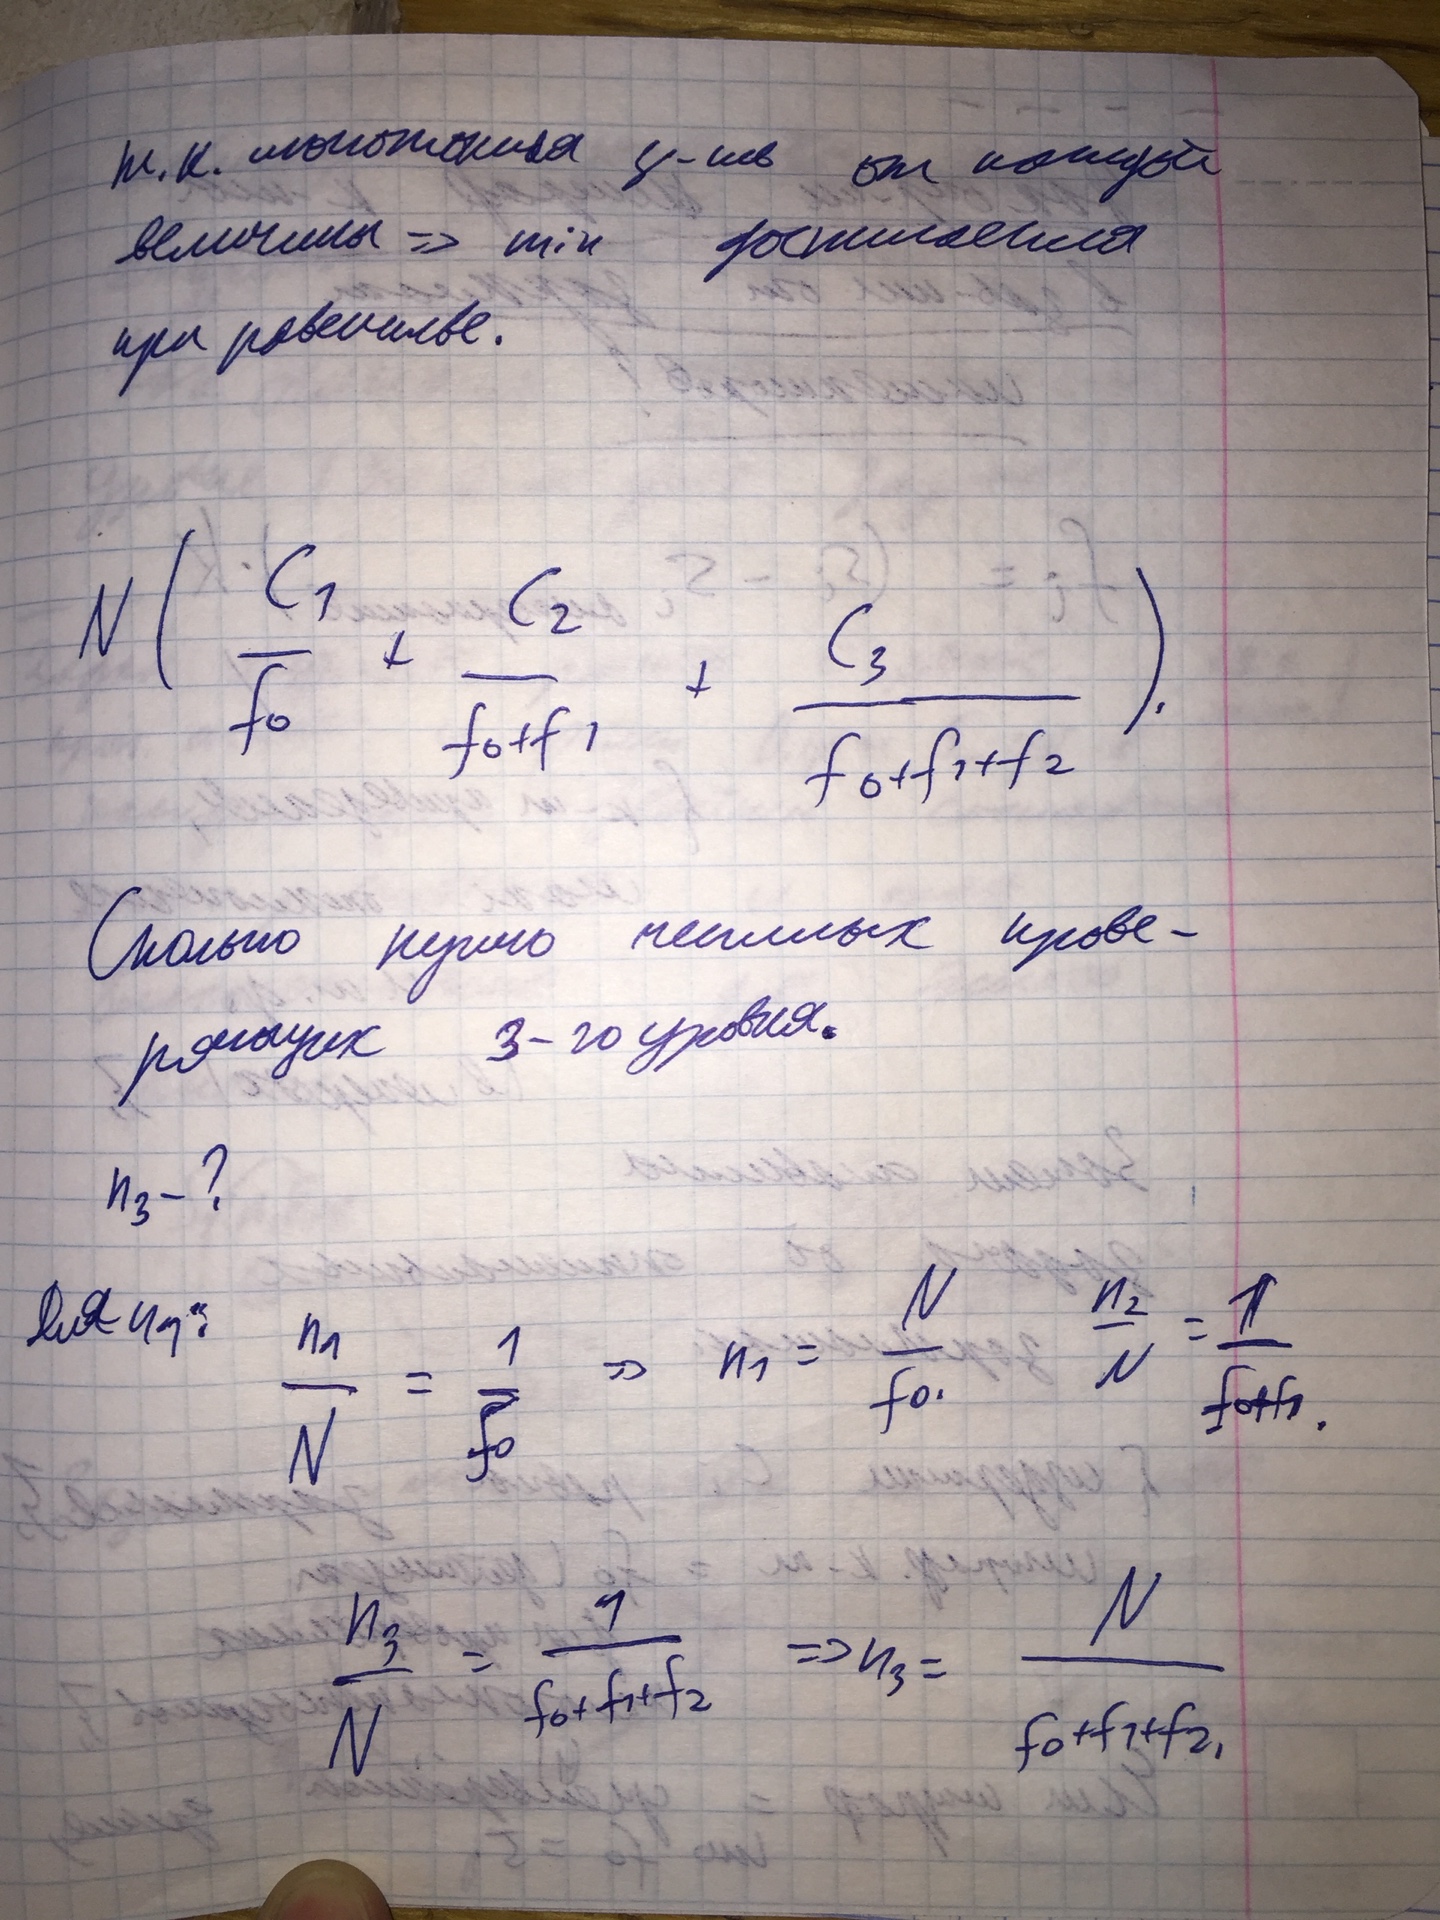 т.к. монотонная у-ть от каждой
величины => min достигается
при равенстве.
N ( C₁/f₀ + C₂/(f₀+f₁) + C₃/(f₀+f₁+f₂) ).
Сколько нужно честных прове-
ряющих 3-го уровня.
n₃ - ?
Для n₁: n₁/N = 1/f₀ => n₁ = N/f₀. n₂/N = 1/(f₀+f₁).
n₃/N = 1/(f₀+f₁+f₂) => n₃ = N/(f₀+f₁+f₂).